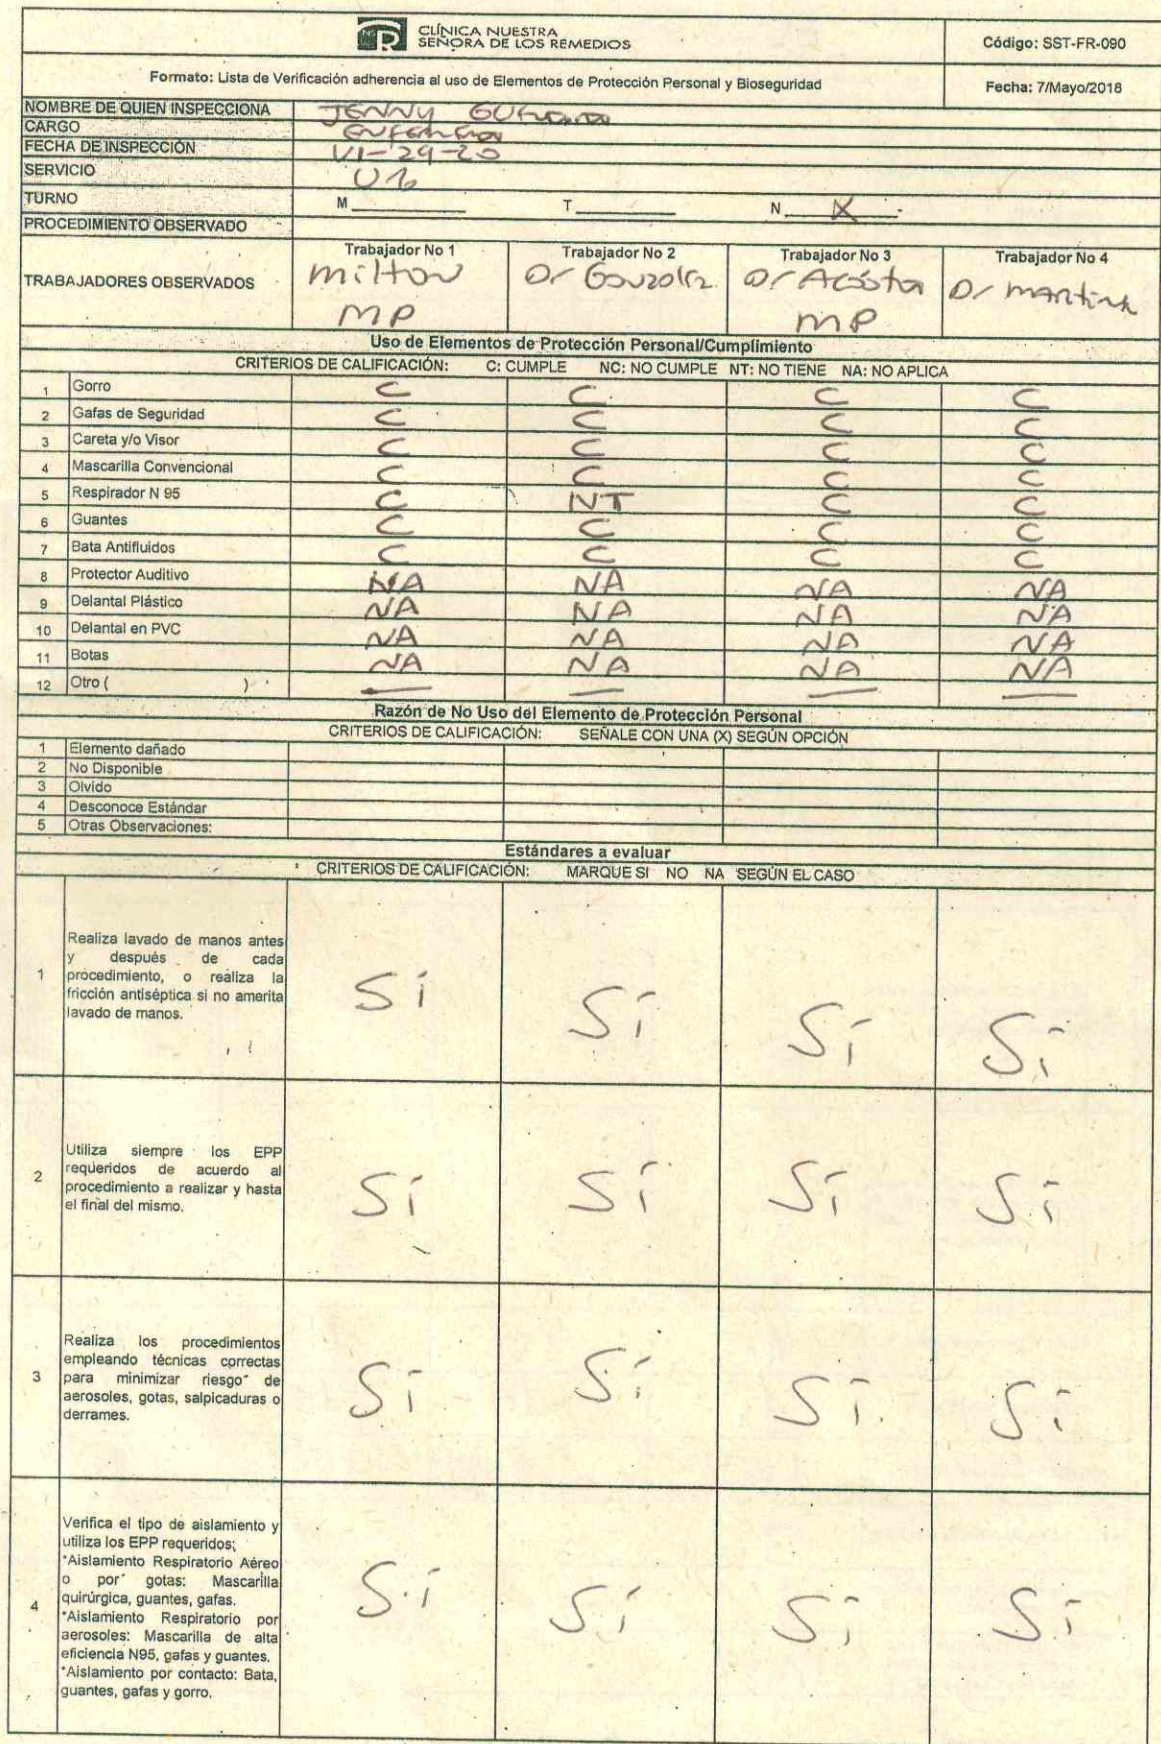 CLÍNICA NUESTRA
SEÑORA DE LOS REMEDIOS
Código: SST-FR-090
Formato: Lista de Verificación adherencia al uso de Elementos de Protección Personal y Bioseguridad
Fecha: 7/Mayo/2018
NOMBRE DE QUIEN INSPECCIONA JENNY
CARGO
FECHA DE INSPECCIÓN VI-29-20
SERVICIO
TURNO M T N X
PROCEDIMIENTO OBSERVADO
TRABAJADORES OBSERVADOS
Trabajador No 1 Trabajador No 2 Trabajador No 3 Trabajador No 4
Milton Dr Dr Acosta Dr
MP MP
Uso de Elementos de Protección Personal/Cumplimiento
CRITERIOS DE CALIFICACIÓN: C: CUMPLE NC: NO CUMPLE NT: NO TIENE NA: NO APLICA
1 Gorro C C C C
2 Gafas de Seguridad C C C C
3 Careta y/o Visor C C C C
4 Mascarilla Convencional C C C C
5 Respirador N 95 C NT C C
6 Guantes C C C C
7 Bata Antifluidos C C C C
8 Protector Auditivo NA NA NA NA
9 Delantal Plástico NA NA NA NA
10 Delantal en PVC NA NA NA NA
11 Botas NA NA NA NA
12 Otro ( ) — — — —
Razón de No Uso del Elemento de Protección Personal
CRITERIOS DE CALIFICACIÓN: SEÑALE CON UNA (X) SEGÚN OPCIÓN
1 Elemento dañado
2 No Disponible
3 Olvido
4 Desconoce Estándar
5 Otras Observaciones:
Estándares a evaluar
CRITERIOS DE CALIFICACIÓN: MARQUE SI NO NA SEGÚN EL CASO
1
Realiza lavado de manos antes
y después de cada
procedimiento, o realiza la
fricción antiséptica si no amerita
lavado de manos.
Si Si Si Si
2
Utiliza siempre los EPP
requeridos de acuerdo al
procedimiento a realizar y hasta
el final del mismo.
Si Si Si Si
3
Realiza los procedimientos
empleando técnicas correctas
para minimizar riesgo de
aerosoles, gotas, salpicaduras o
derrames.
Si Si Si Si
4
Verifica el tipo de aislamiento y
utiliza los EPP requeridos;
*Aislamiento Respiratorio Aéreo
o por gotas: Mascarilla
quirúrgica, guantes, gafas.
*Aislamiento Respiratorio por
aerosoles: Mascarilla de alta
eficiencia N95, gafas y guantes.
*Aislamiento por contacto: Bata,
guantes, gafas y gorro.
Si Si Si Si